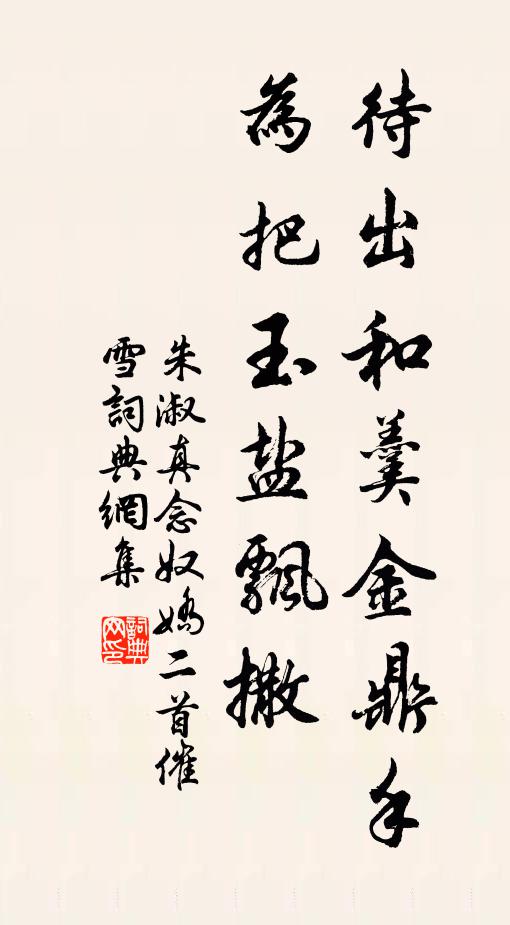 待出和羹金鼎手
為把玉盐飄撒
朱淑真念奴嬌二首催
雪詞典網集
詞典网印